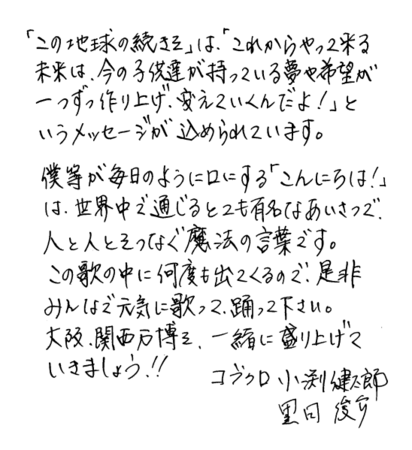 「この地球の続きを」は、「これからやって来る
未来は、今の子供達が持っている夢や希望が
一つずつ作り上げ、変えていくんだよ！」と
いうメッセージが込められています。
僕等が毎日のように口にする「こんにちは！」
は、世界中で通じるとても有名なあいさつで、
人と人とをつなぐ魔法の言葉です。
この歌の中に何度も出てくるので、是非
みんなで元気に歌って、踊って下さい。
大阪、関西万博を、一緒に盛り上げて
いきましょう!!
コブクロ 小渕健太郎
黒田俊介